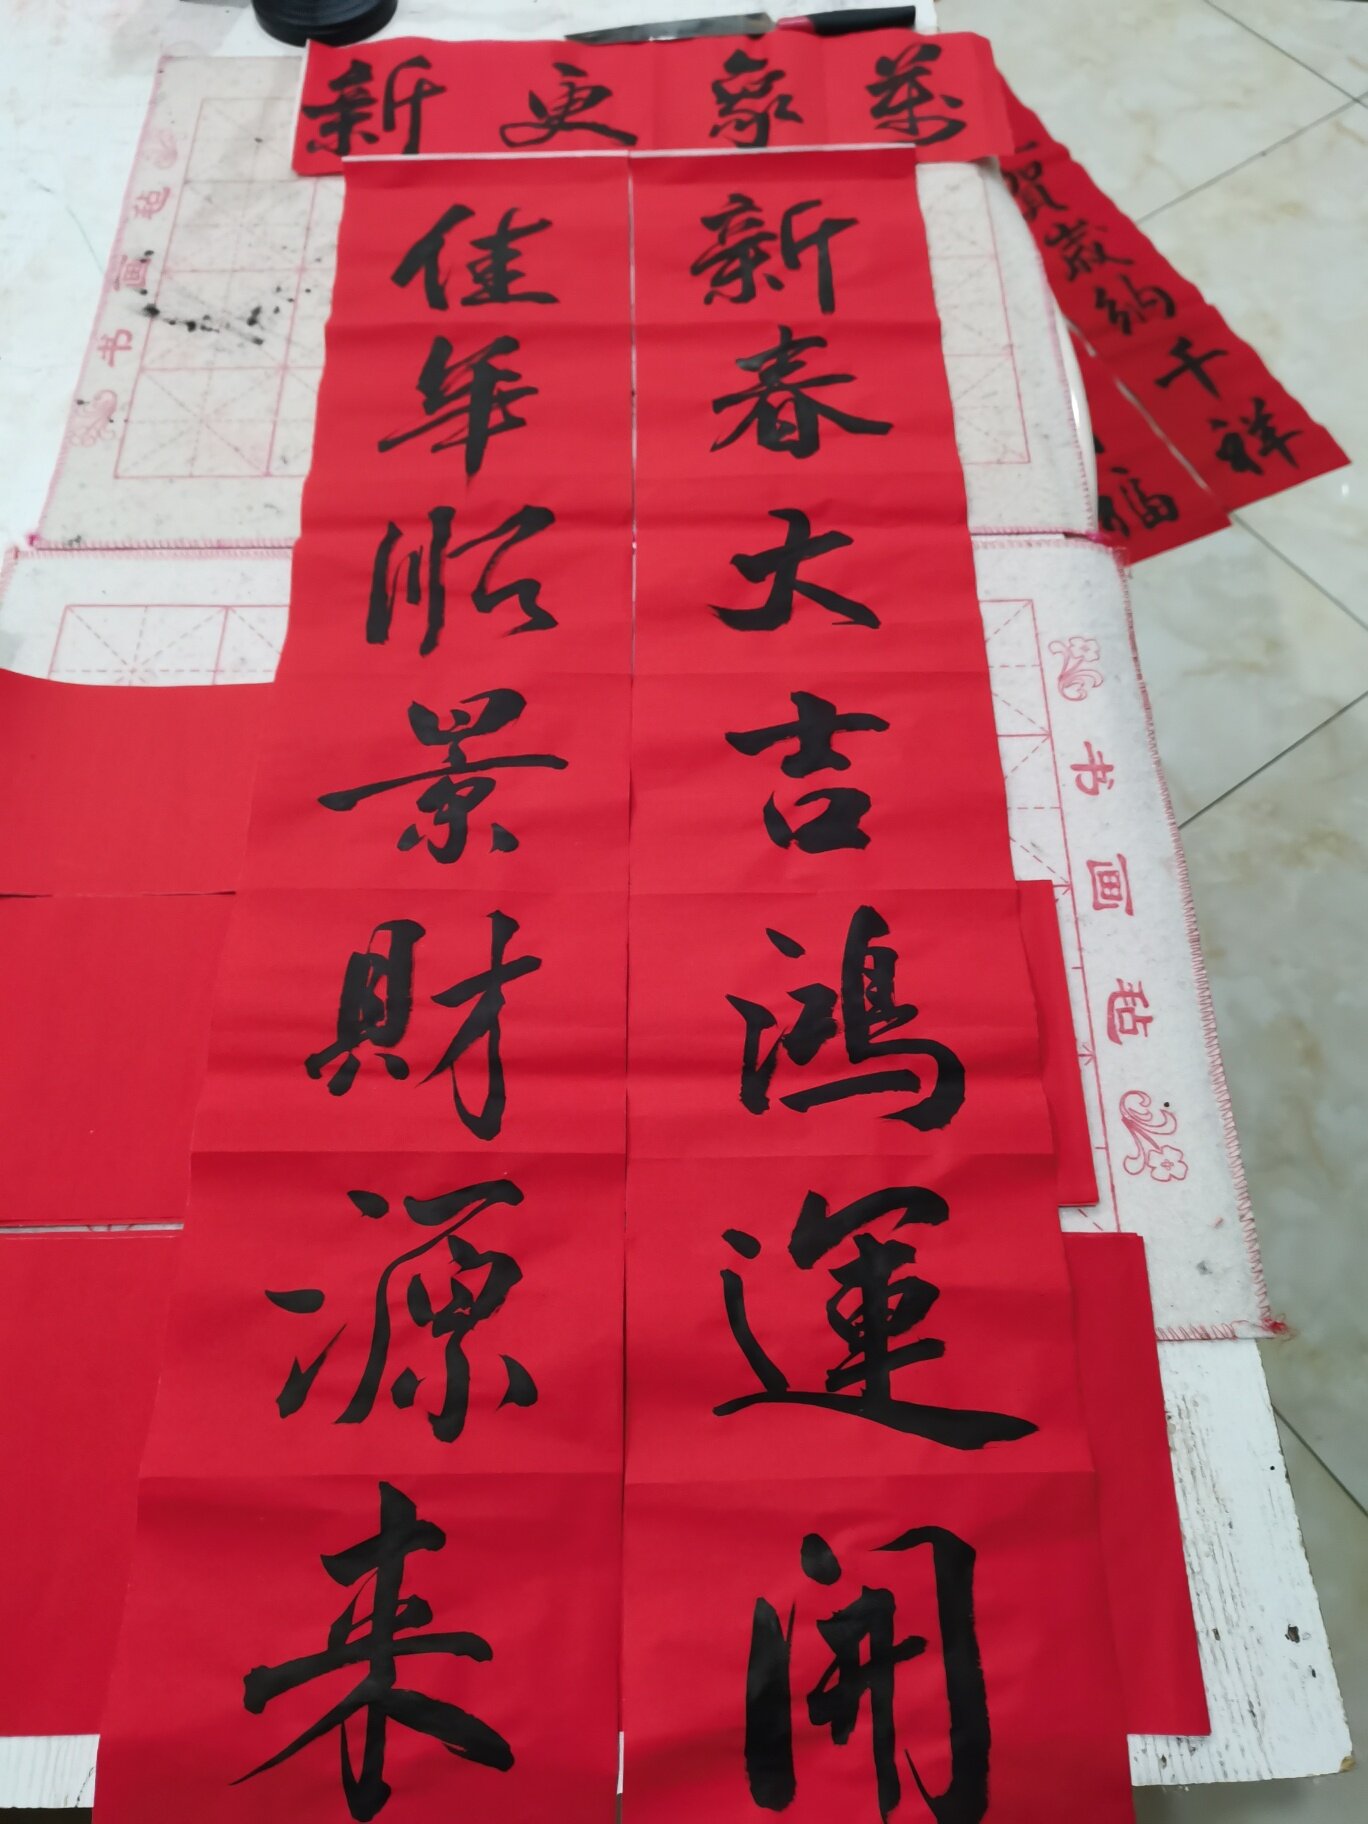 萬象更新
新春大吉鴻運開
佳年順景財源来
賀歲納千祥
福
书画毡
书画毡